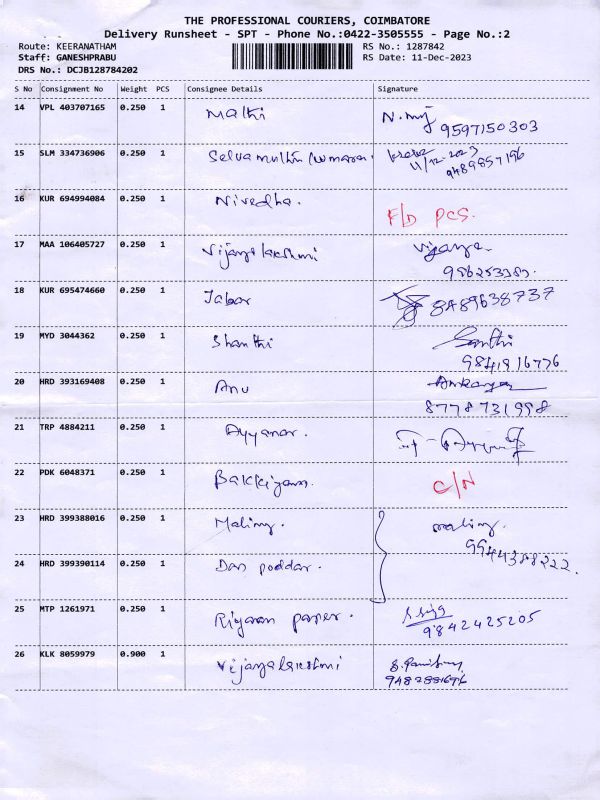 THE PROFESSIONAL COURIERS, COIMBATORE
Delivery Runsheet - SPT - Phone No.:0422-3505555 - Page No.:2
Route: KEERANATHAM RS No.: 1287842
Staff: GANESHPRABU RS Date: 11-Dec-2023
DRS No.: DCJB128784202
S No Consignment No Weight PCS Consignee Details Signature
14 VPL 403707165 0.250 1 Malthi
9597150303
15 SLM 334736906 0.250 1 Selvamuthu kumaran.
11/12-2023
9489857196
16 KUR 694994084 0.250 1 Nivedha. F/D PCS.
17 MAA 106405727 0.250 1 Vijayalakshmi Vijaya.
18 KUR 695474660 0.250 1 Jabar 8489638737
19 MYD 3044362 0.250 1 Shanthi Santhi
9841916776
20 HRD 393169408 0.250 1 Anu
8778731998
21 TRP 4884211 0.250 1 Ayyanar.
22 PDK 6048371 0.250 1 Bakkiyam. C/N
23 HRD 399388016 0.250 1 Maliny. maliny.
9944388222.
24 HRD 399390114 0.250 1 Dan poddar.
25 MTP 1261971 0.250 1 Riyaan paper.
9842425205
26 KLK 8059979 0.900 1 Vijayalakshmi